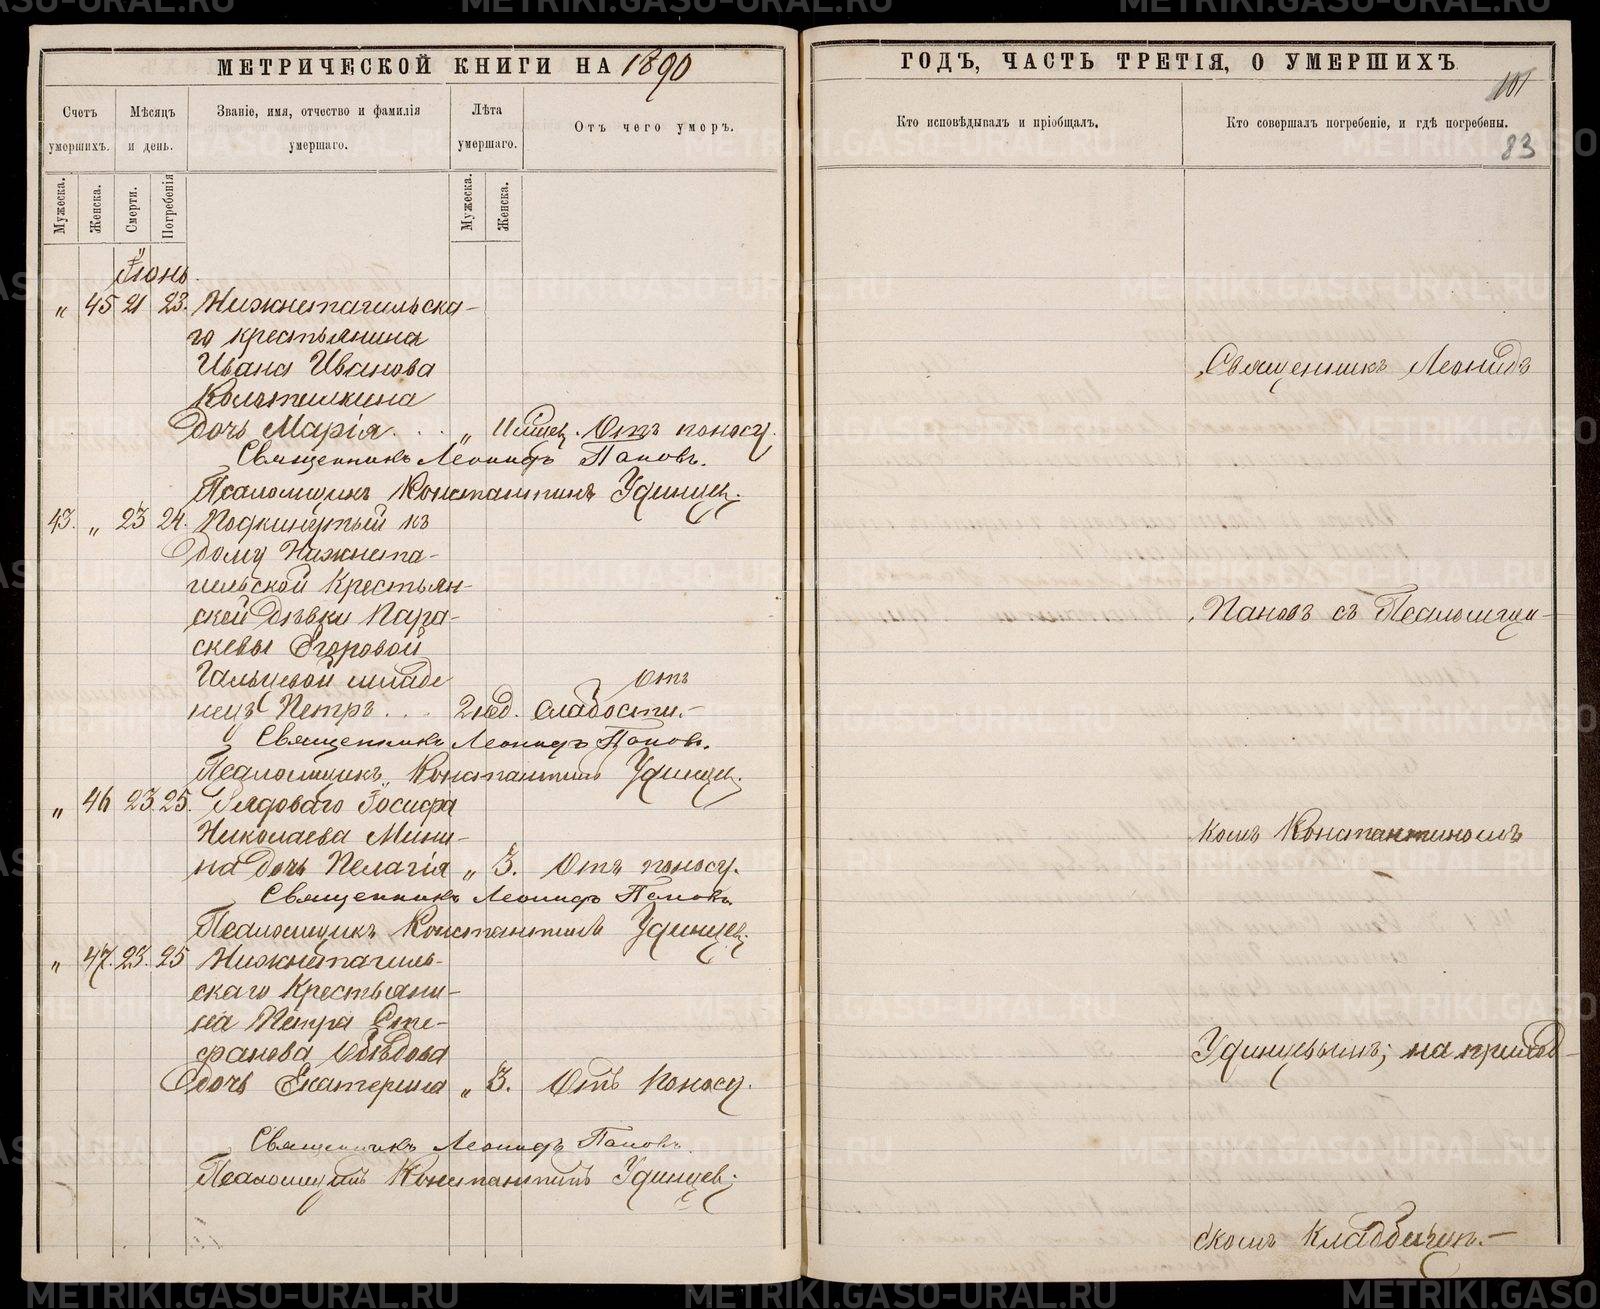 МЕТРИЧЕСКОЙ КНИГИ НА 1890
Счетъ умершихъ.
Мѣсяцъ и день.
Званіе, имя, отчество и фамилія умершаго.
Лѣта умершаго.
Отъ чего умеръ.
Мужеска.
Женска.
Смерти.
Погребенія
Мужеска.
Женска.
Іюнь.
„ 45 21 23. Нижнетагильска-
го крестьянина
Ивана Иванова
дочь Марія . . . „ 11 мѣсец. Отъ поносу.
Священникъ Леонидъ Поповъ.
Псаломщикъ Константинъ Удинцев.
43. „ 23 24. Подкинутый къ
дому Нижнета-
гильской Крестьян-
ской Дѣвки Пара-
скевы Егоровой
Гальцевой младе
Отъ
нецъ Петръ . . . 2 нед. слабости.-
Священникъ Леонидъ Поповъ.
Псаломщикъ Константинъ Удинцев.
„ 46 23. 25. Рядоваго Іосифа
Николаева Мини-
на Дочь Пелагія „ 3. Отъ поносу.
Священникъ Леонидъ Поповъ
Псаломщикъ Константинъ Удинцев.
„ 47. 23. 25 Нижнетагиль-
скаго Крестьяни-
на Петра Сте-
фанова Обѣдова
дочь Екатерина „ 3. Отъ Поносу.
Священникъ Леонидъ Поповъ.
Псаломщикъ Константинъ Удинцев.
ГОДЪ, ЧАСТЬ ТРЕТІЯ, О УМЕРШИХЪ
101
Кто исповѣдывалъ и пріобщалъ.
Кто совершалъ погребеніе, и гдѣ погребены.
83
Священникъ Леонидъ
Поповъ съ Псаломщи-
комъ Константиномъ
Удинцевымъ; на приход-
скомъ Кладбищѣ.-
METRIKI.GASO-URAL.RU